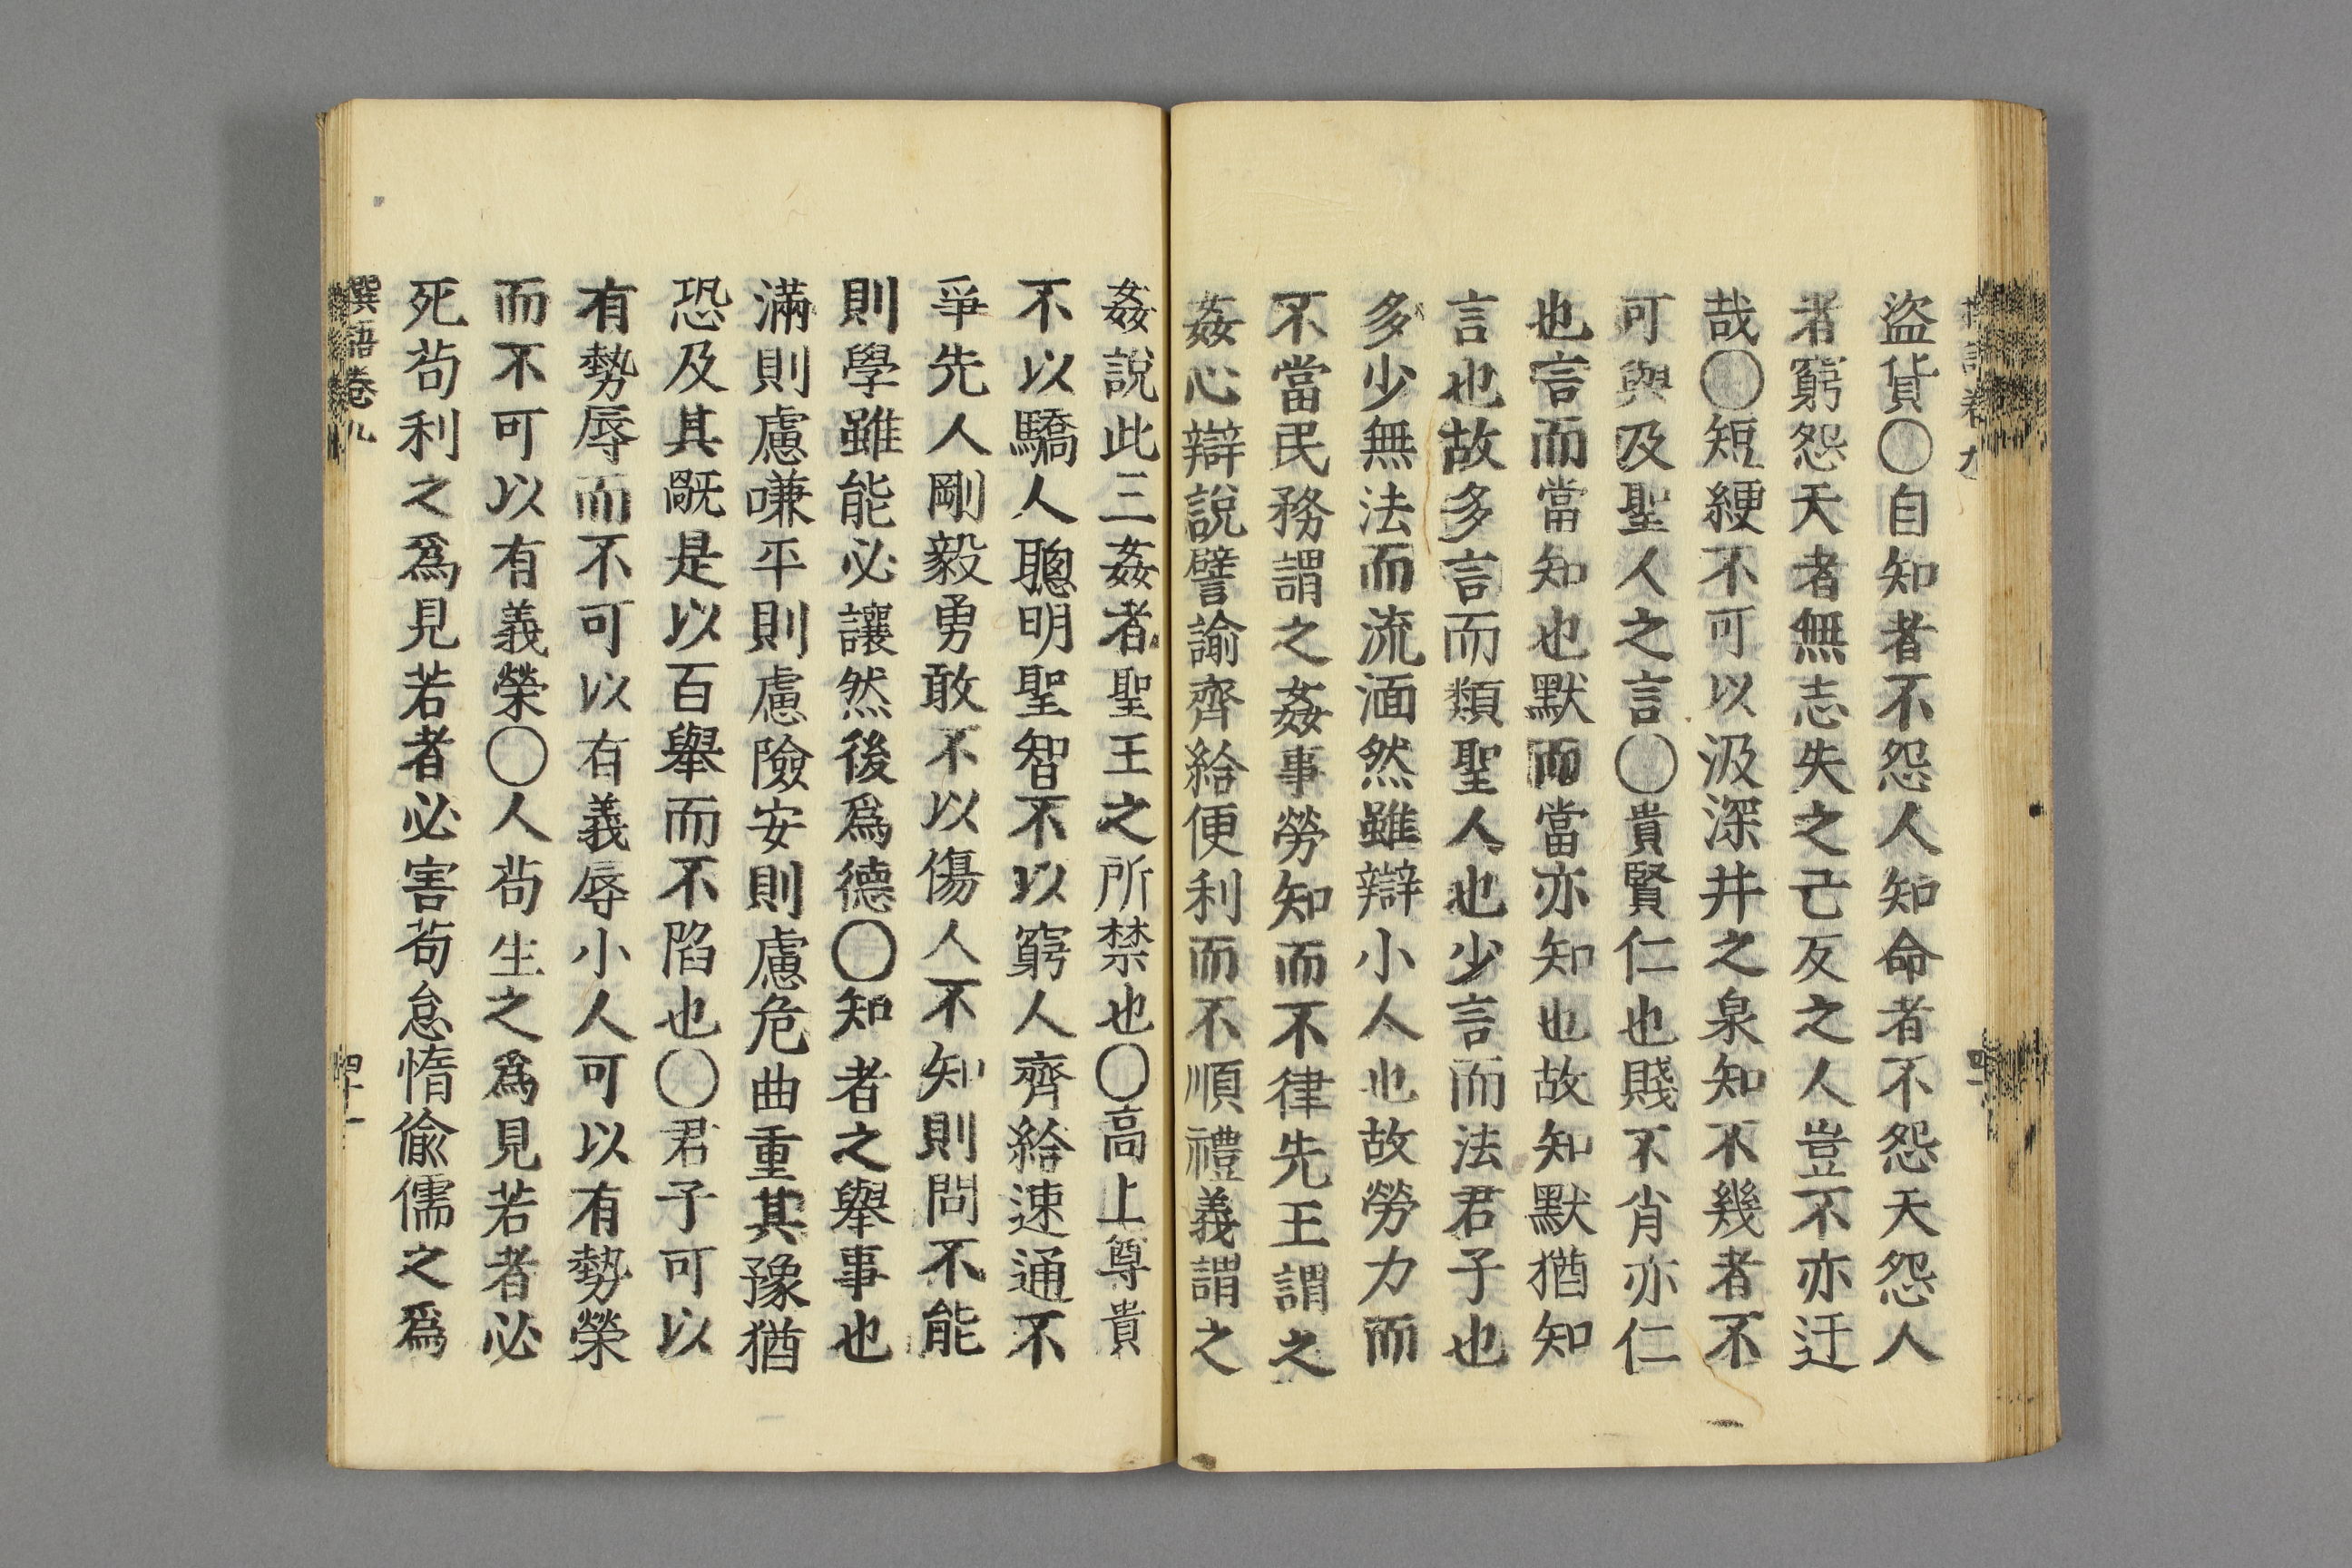 盜貨〇自知者不怨人知命者不怨天怨人
者窮怨天者無志失之己反之人豈不亦迂
哉〇短綆不可以汲深井之泉知不幾者不
可與及聖人之言〇貴賢仁也賤不肖亦仁
也言而當知也默而當亦知也故知默猶知
言也故多言而類聖人也少言而法君子也
多少無法而流湎然雖辯小人也故勞力而
不當民務謂之姦事勞知而不律先王謂之
姦心辯說譬諭齊給便利而不順禮義謂之
姦說此三姦者聖王之所禁也〇高上尊貴
不以驕人聰明聖智不以窮人齊給速通不
爭先人剛毅勇敢不以傷人不知則問不能
則學雖能必讓然後爲德〇知者之舉事也
滿則慮嗛平則慮險安則慮危曲重其豫猶
恐及其旤是以百舉而不陷也〇君子可以
有勢辱而不可以有義辱小人可以有勢榮
而不可以有義榮〇人苟生之爲見若者必
死苟利之爲見若者必害苟怠惰偷儒之爲
撰語卷九
四十一